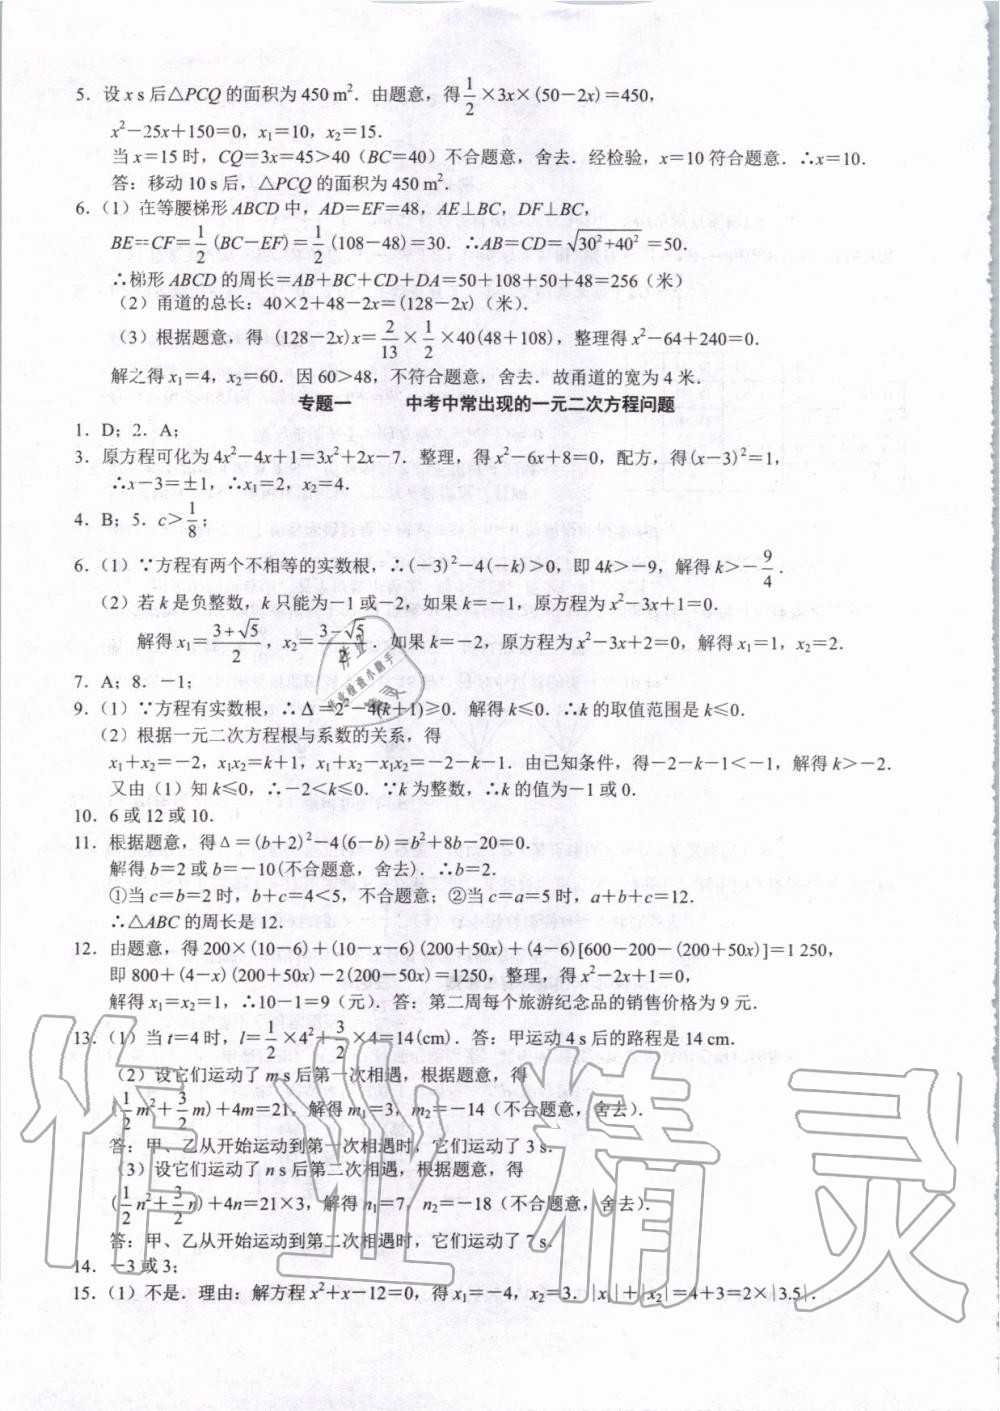 5．设 x s 后△PCQ 的面积为 450 m²．由题意，得 1/2 ×3x×(50－2x)＝450，
x²－25x＋150＝0，x₁＝10，x₂＝15．
当 x＝15 时，CQ＝3x＝45＞40（BC＝40）不合题意，舍去．经检验，x＝10 符合题意．∴x＝10．
答：移动 10 s 后，△PCQ 的面积为 450 m²．
6．（1）在等腰梯形 ABCD 中，AD＝EF＝48，AE⊥BC，DF⊥BC，
BE＝CF＝1/2 (BC－EF)＝1/2 (108－48)＝30．∴AB＝CD＝√(30²+40²)＝50．
∴梯形 ABCD 的周长＝AB＋BC＋CD＋DA＝50＋108＋50＋48＝256（米）
（2）甬道的总长：40×2＋48－2x＝(128－2x)（米）．
（3）根据题意，得 (128－2x)x＝2/13 × 1/2 ×40(48＋108)，整理得 x²－64＋240＝0．
解之得 x₁＝4，x₂＝60．因 60＞48，不符合题意，舍去．故甬道的宽为 4 米．
专题一 中考中常出现的一元二次方程问题
1．D；2．A；
3．原方程可化为 4x²－4x＋1＝3x²＋2x－7．整理，得 x²－6x＋8＝0，配方，得(x－3)²＝1，
∴x－3＝±1，∴x₁＝2，x₂＝4．
4．B；5．c＞1/8；
6．（1）∵方程有两个不相等的实数根，∴(－3)²－4(－k)＞0，即 4k＞－9，解得 k＞－9/4．
（2）若 k 是负整数，k 只能为－1 或－2，如果 k＝－1，原方程为 x²－3x＋1＝0．
解得 x₁＝(3＋√5)/2，x₂＝(3－√5)/2．如果 k＝－2，原方程为 x²－3x＋2＝0，解得 x₁＝1，x₂＝2．
7．A；8．－1；
9．（1）∵方程有实数根，∴Δ＝2²－4(k＋1)≥0．解得 k≤0．∴k 的取值范围是 k≤0．
（2）根据一元二次方程根与系数的关系，得
x₁＋x₂＝－2，x₁x₂＝k＋1，x₁＋x₂－x₁x₂＝－2－k－1．由已知条件，得－2－k－1＜－1，解得 k＞－2．
又由（1）知 k≤0，∴－2＜k≤0．∵k 为整数，∴k 的值为－1 或 0．
10．6 或 12 或 10．
11．根据题意，得 Δ＝(b＋2)²－4(6－b)＝b²＋8b－20＝0．
解得 b＝2 或 b＝－10(不合题意，舍去)．∴b＝2．
①当 c＝b＝2 时，b＋c＝4＜5，不合题意；②当 c＝a＝5 时，a＋b＋c＝12．
∴△ABC 的周长是 12．
12．由题意，得 200×(10－6)＋(10－x－6)(200＋50x)＋(4－6)[600－200－(200＋50x)]＝1 250，
即 800＋(4－x)(200＋50x)－2(200－50x)＝1250，整理，得 x²－2x＋1＝0，
解得 x₁＝x₂＝1，∴10－1＝9（元）．答：第二周每个旅游纪念品的销售价格为 9 元．
13．（1）当 t＝4 时，l＝1/2 ×4²＋3/2 ×4＝14(cm)．答：甲运动 4 s 后的路程是 14 cm．
（2）设它们运动了 m s 后第一次相遇，根据题意，得
(1/2 m²＋3/2 m)＋4m＝21，解得 m₁＝3，m₂＝－14（不合题意，舍去）．
答：甲、乙从开始运动到第一次相遇时，它们运动了 3 s．
（3）设它们运动了 n s 后第二次相遇，根据题意，得
(1/2 n²＋3/2 n)＋4n＝21×3，解得 n₁＝7，n₂＝－18（不合题意，舍去）．
答：甲、乙从开始运动到第二次相遇时，它们运动了 7 s．
14．－3 或 3；
15．（1）不是．理由：解方程 x²＋x－12＝0，得 x₁＝－4，x₂＝3．|x₁|＋|x₂|＝4＋3＝2×|3.5|．
作业精灵
作业检查小助手